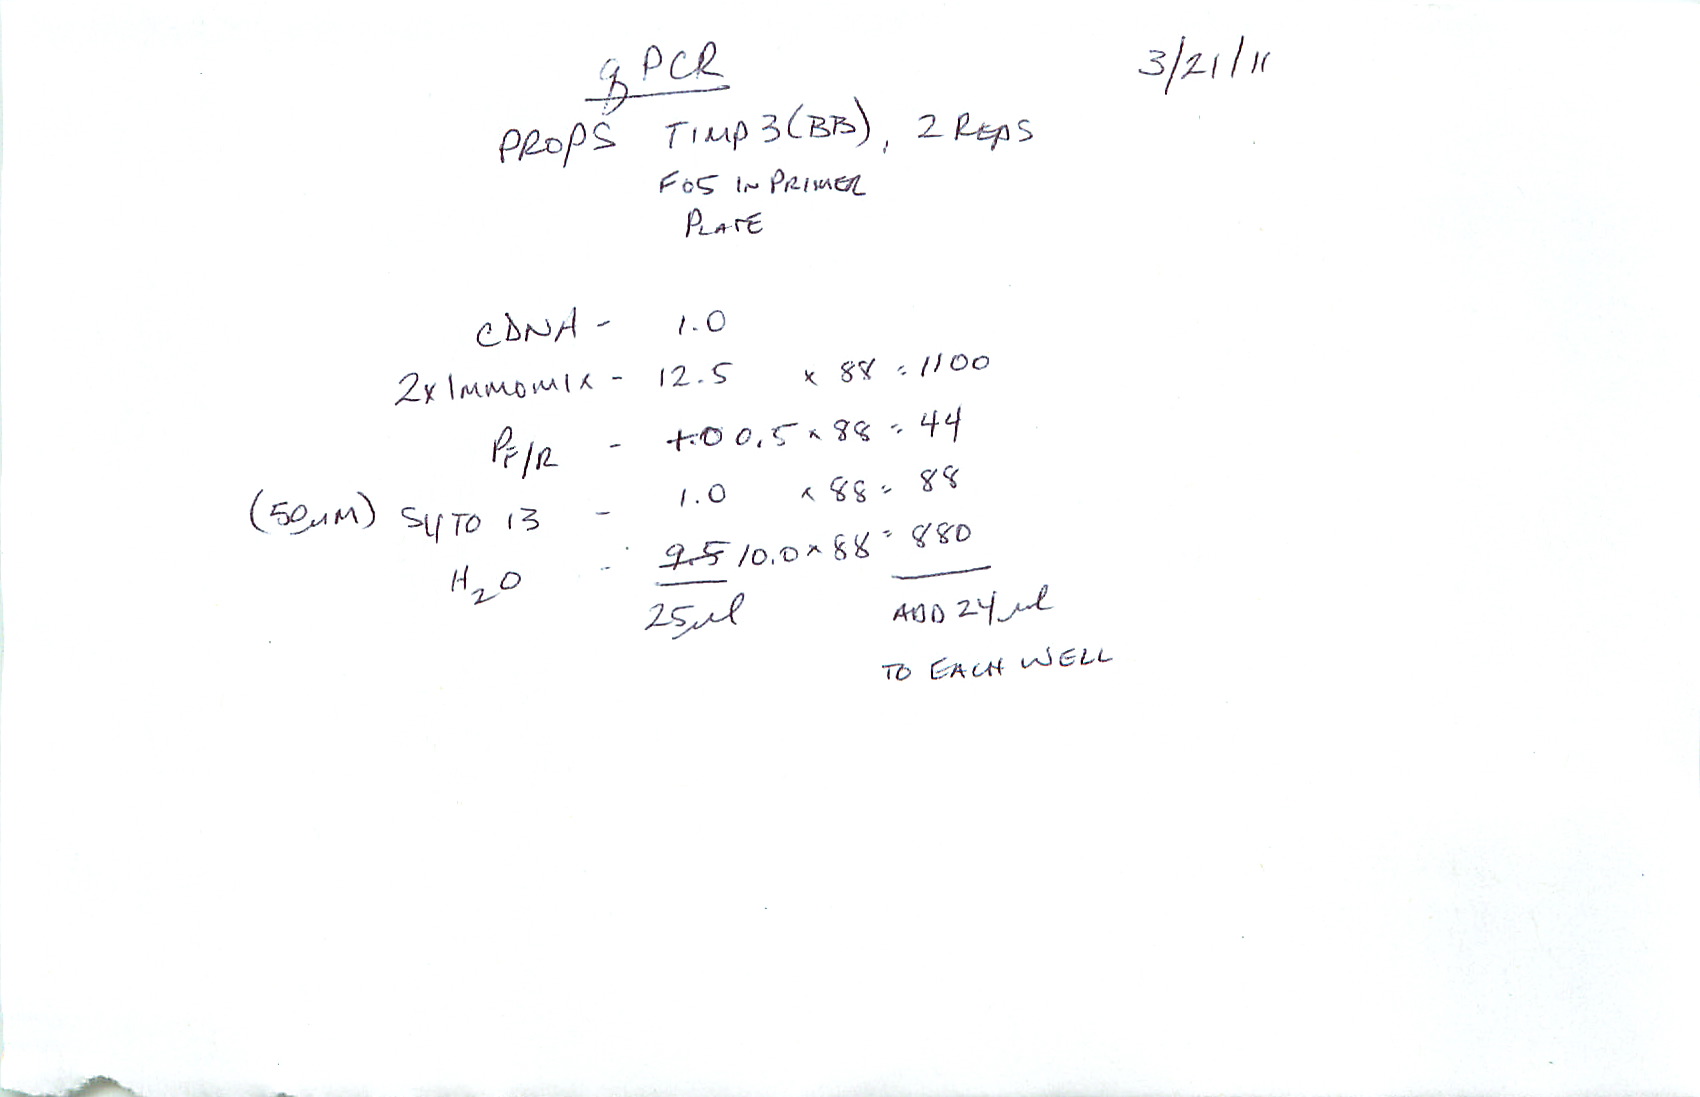 qPCR 3/21/11
PROPS TIMP3(BB), 2 REPS
F05 IN PRIMER
PLATE
CDNA - 1.0
2x IMMOMIX - 12.5 x 88 = 1100
PF/R - 1.0 0.5 x 88 = 44
(50uM) SYTO 13 - 1.0 x 88 = 88
H2O - 9.5 10.0 x 88 = 880
25µl ADD 24 µl
TO EACH WELL